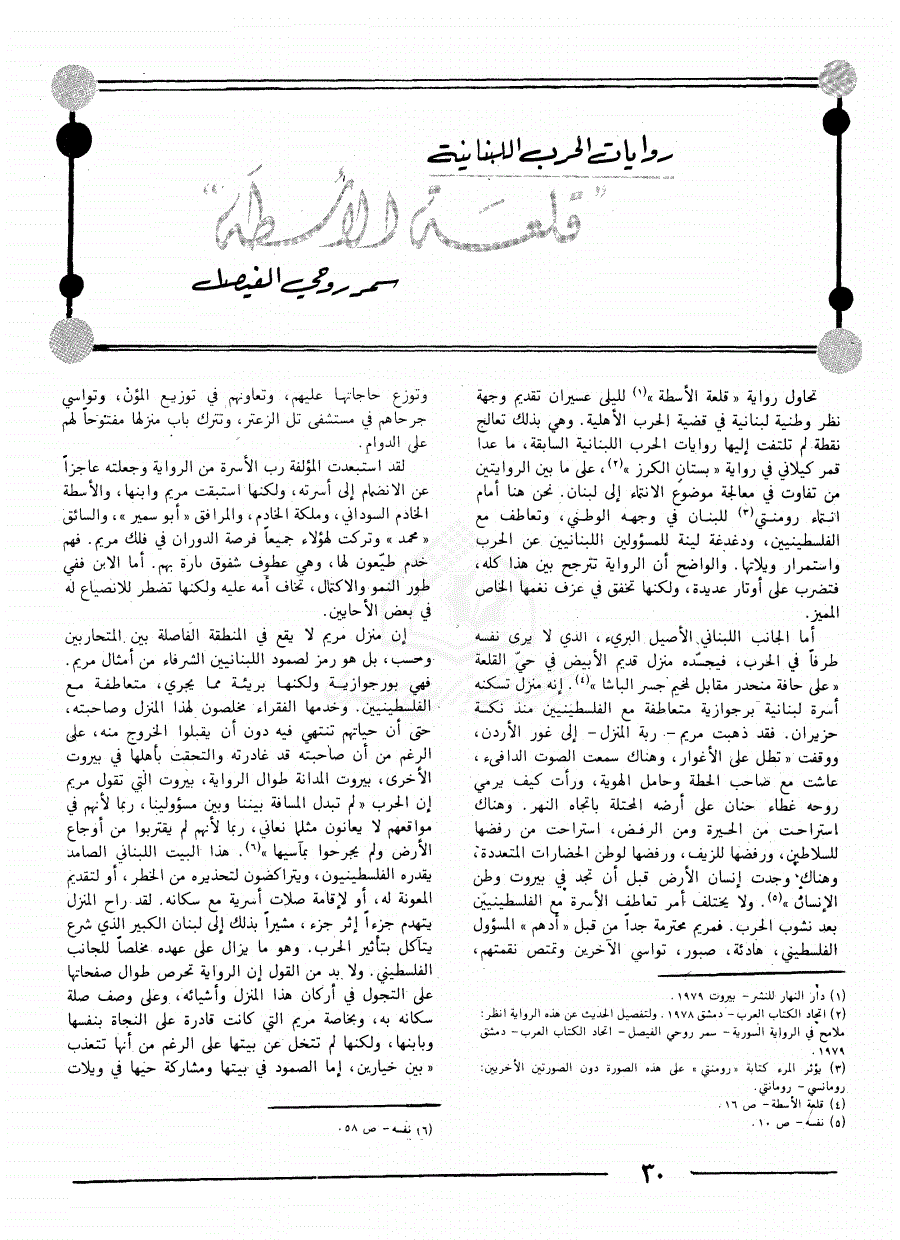 روايات الحرب اللبنانية
"قلعة الأسطة"
سمر روحي الفيصل
تحاول رواية « قلعة الأسطة »(١) لليلى عسيران تقديم وجهة
نظر وطنية لبنانية في قضية الحرب الأهلية. وهي بذلك تعالج
نقطة لم تلتفت إليها روايات الحرب اللبنانية السابقة، ما عدا
قمر كيلاني في رواية « بستان الكرز »(٢)، على ما بين الروايتين
من تفاوت في معالجة موضوع الانتماء إلى لبنان. نحن هنا أمام
انتماء رومنتي(٣) للبنان في وجهه الوطني، وتعاطف مع
الفلسطينيين، ودغدغة لينة للمسؤولين اللبنانيين عن الحرب
واستمرار ويلاتها. والواضح أن الرواية تترجح بين هذا كله،
فتضرب على أوتار عديدة، ولكنها تخفق في عزف نغمها الخاص
المميز.
أما الجانب اللبناني الأصيل البريء، الذي لا يرى نفسه
طرفاً في الحرب، فيجسّده منزل قديم الأبيض في حيّ القلعة
« على حافة منحدر مقابل لمخيم جسر الباشا »(٤). إنه منزل تسكنه
أسرة لبنانية برجوازية متعاطفة مع الفلسطينيين منذ نكسة
حزيران. فقد ذهبت مريم – ربة المنزل – إلى غور الأردن،
ووقفت « تطل على الأغوار، وهناك سمعت الصوت الدافىء،
عاشت مع صاحب الحطة وحامل الهوية، ورأت كيف يرمي
روحه غطاء حنان على أرضه المحتلة باتجاه النهر. وهناك
استراحت من الحيرة ومن الرفض، استراحت من رفضها
للسلاطين، ورفضها للزيف، ورفضها لوطن الحضارات المتعددة،
وهناك وجدت إنسان الأرض قبل أن تجد في بيروت وطن
الإنسان »(٥). ولا يختلف أمر تعاطف الأسرة مع الفلسطينيين
بعد نشوب الحرب. فمريم محترمة جداً من قبل « أدهم » المسؤول
الفلسطيني، هادئة، صبور، تواسي الآخرين وتمتص نقمتهم،
(١) دار النهار للنشر – بيروت ١٩٧٩.
(٢) اتحاد الكتاب العرب – دمشق ١٩٧٨. ولتفصيل الحديث عن هذه الرواية انظر:
ملامح في الرواية السورية – سمر روحي الفيصل – اتحاد الكتاب العرب – دمشق
١٩٧٩.
(٣) يؤثر المرء كتابة « رومنتي » على هذه الصورة دون الصورتين الأخريين:
رومانسي – رومانتي.
(٤) قلعة الأسطة – ص ١٦.
(٥) نفسه – ص ١٠.
وتوزع حاجاتها عليهم، وتعاونهم في توزيع المؤن، وتواسي
جرحاهم في مستشفى تل الزعتر، وتترك باب منزلها مفتوحاً لهم
على الدوام.
لقد استبعدت المؤلفة رب الأسرة من الرواية وجعلته عاجزاً
عن الانضمام إلى أسرته، ولكنها استبقت مريم وابنها، والأسطة
الخادم السوداني، وملكة الخادم، والمرافق « أبو سمير »، والسائق
« محمد » وتركت لهؤلاء جميعاً فرصة الدوران في فلك مريم. فهم
خدم طيّعون لها، وهي عطوف شفوق بارة بهم. أما الابن ففي
طور النمو والاكتمال، تخاف أمه عليه ولكنها تضطر للانصياع له
في بعض الأحايين.
إن منزل مريم لا يقع في المنطقة الفاصلة بين المتحاربين
وحسب، بل هو رمز لصمود اللبنانيين الشرفاء من أمثال مريم.
فهي بورجوازية ولكنها بريئة مما يجري، متعاطفة مع
الفلسطينيين. وخدمها الفقراء مخلصون لهذا المنزل وصاحبته،
حتى أن حياتهم تنتهي فيه دون أن يقبلوا الخروج منه، على
الرغم من أن صاحبته قد غادرته والتحقت بأهلها في بيروت
الأخرى، بيروت المدانة طوال الرواية، بيروت التي تقول مريم
إن الحرب « لم تبدل المسافة بيننا وبين مسؤولينا، ربما لأنهم في
مواقعهم لا يعانون مثلما نعاني، ربما لأنهم لم يقتربوا من أوجاع
الأرض ولم يجرحوا بمآسيها »(٦). هذا البيت اللبناني الصامد
يقدره الفلسطينيون، ويتراكضون لتحذيره من الخطر، أو لتقديم
المعونة له، أو لإقامة صلات أسرية مع سكانه. لقد راح المنزل
يتهدم جزءاً إثر جزء، مشيراً بذلك إلى لبنان الكبير الذي شرع
يتآكل بتأثير الحرب. وهو ما يزال على عهده مخلصاً للجانب
الفلسطيني. ولا بد من القول إن الرواية تحرص طوال صفحاتها
على التجول في أركان هذا المنزل وأشيائه، وعلى وصف صلة
سكانه به، وبخاصة مريم التي كانت قادرة على النجاة بنفسها
وبابنها، ولكنها لم تتخل عن بيتها على الرغم من أنها تتعذب
« بين خيارين، إما الصمود في بيتها ومشاركة حيّها في ويلات
(٦) نفسه – ص ٥٨.
٣٠